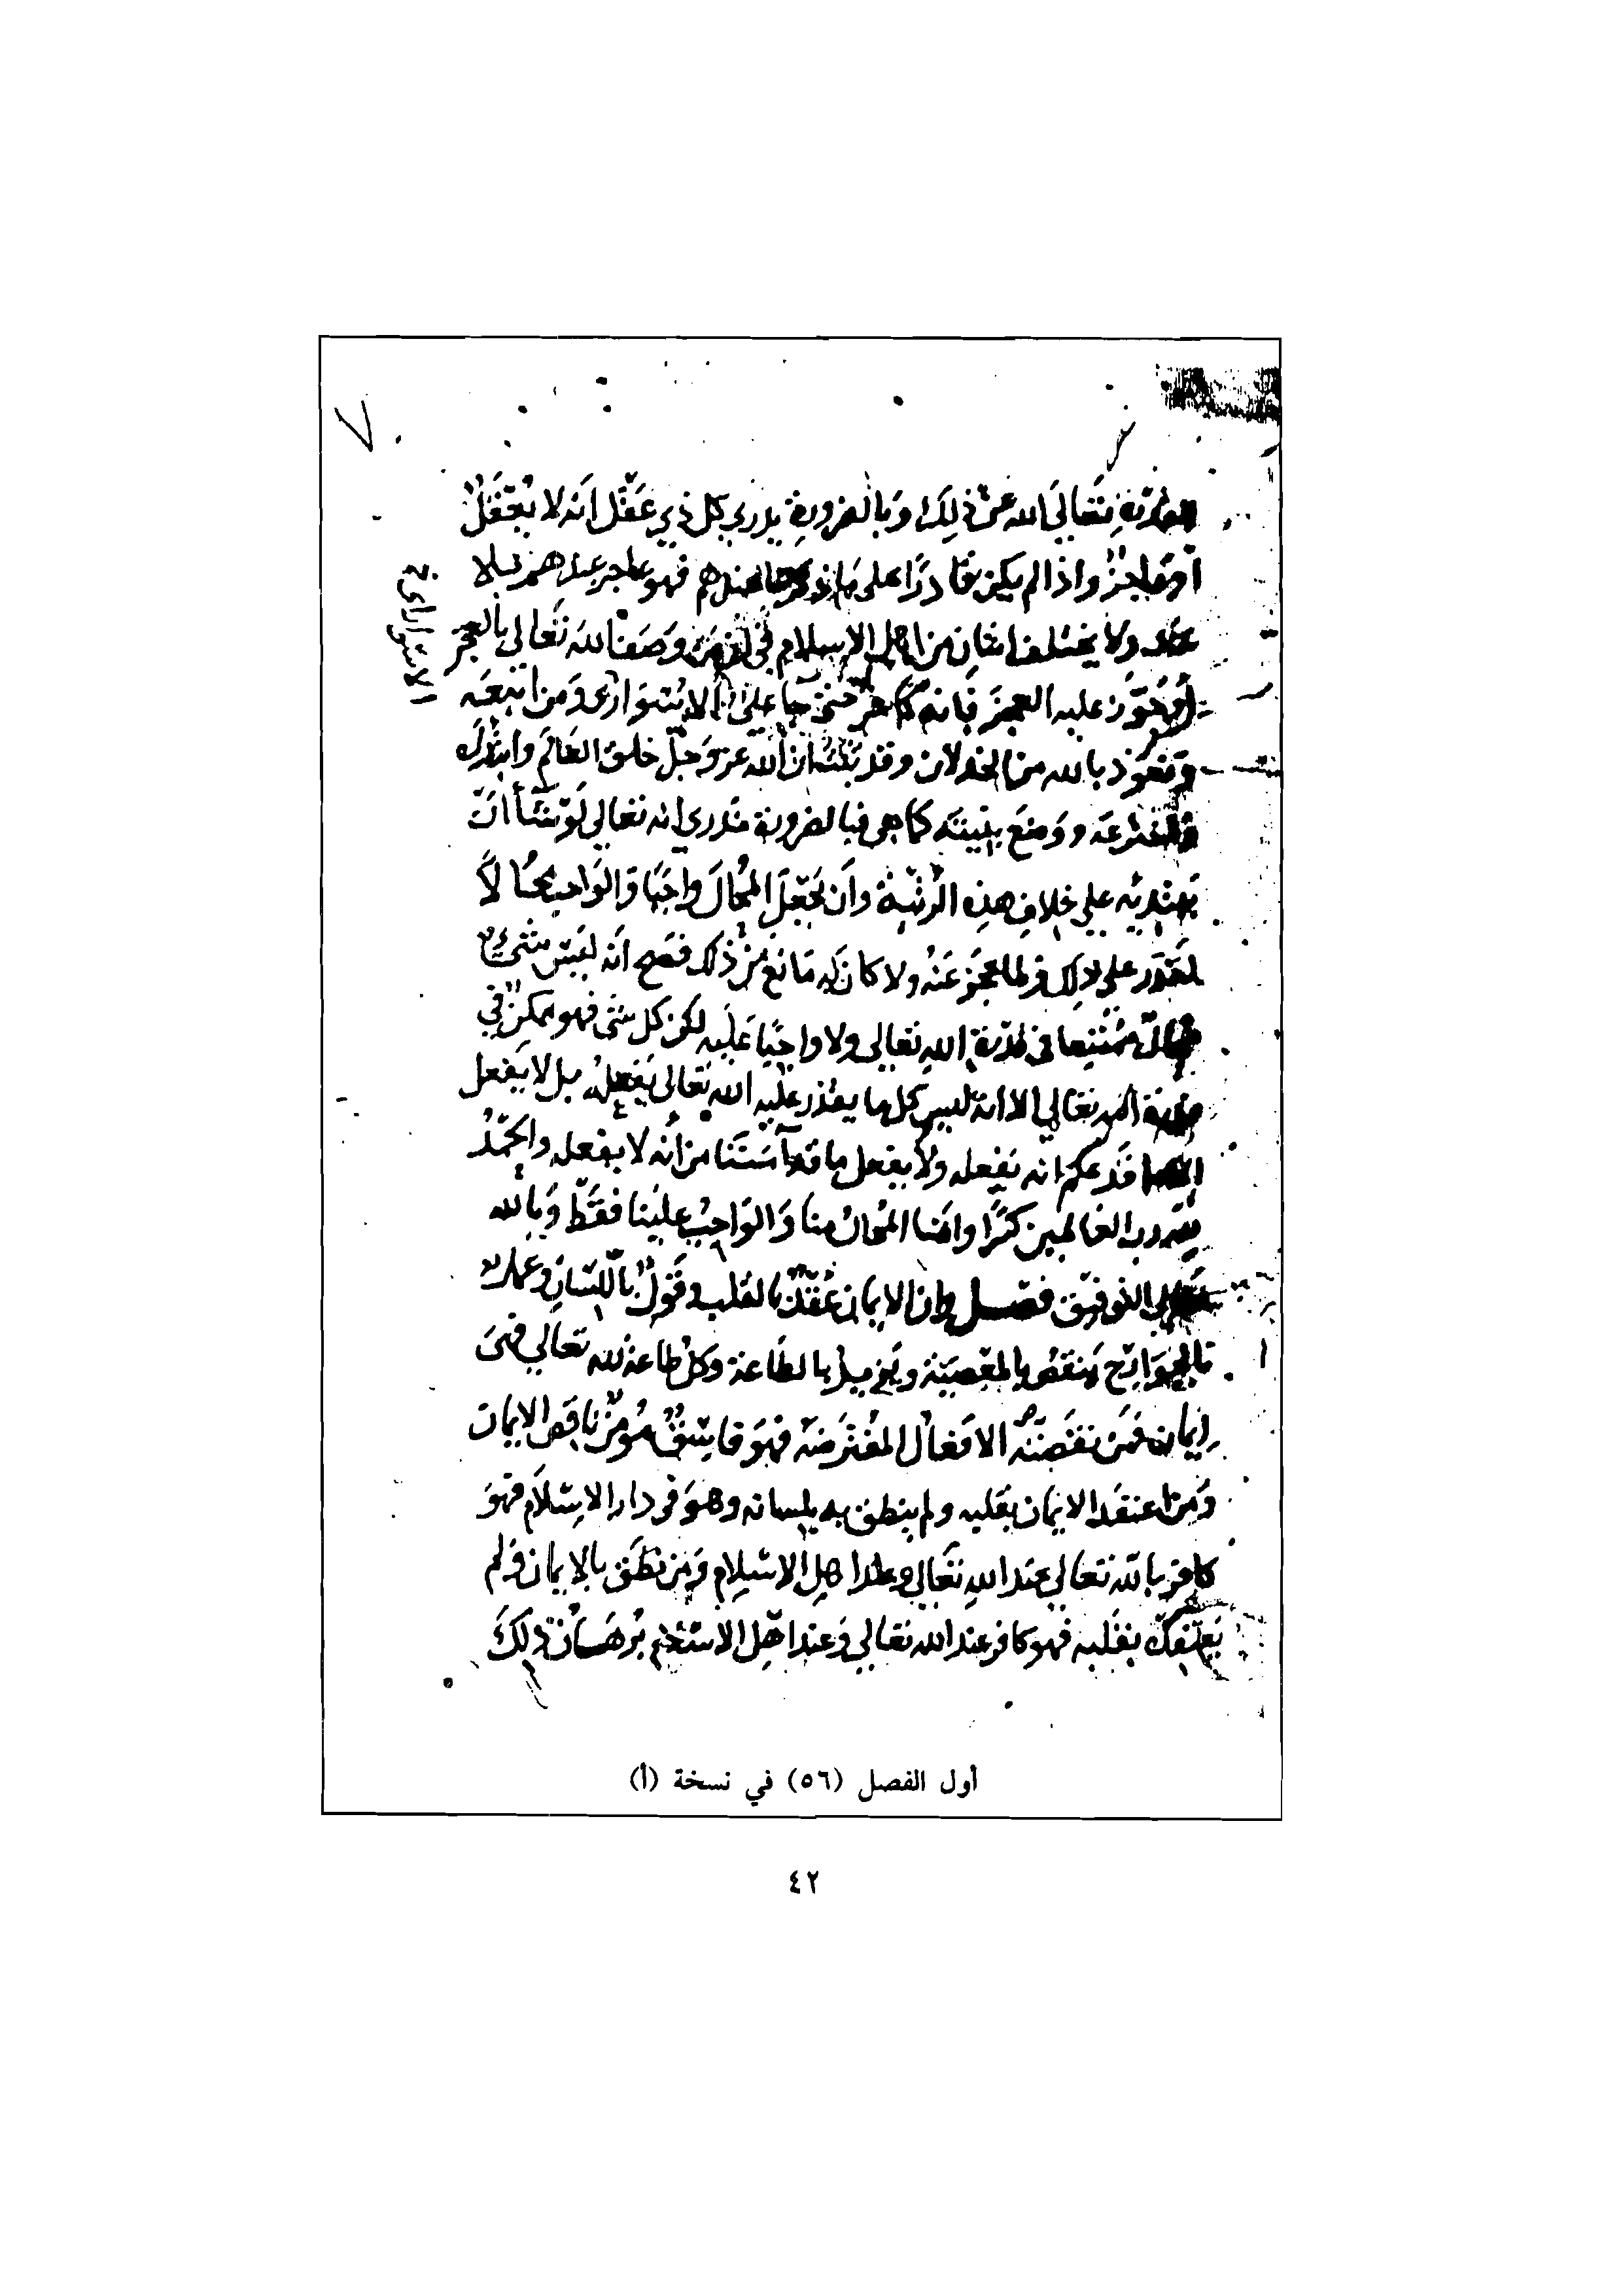 تعالى الله عن ذلك وبالضرورة يدري كل ذي عقل انه لا يعقل
واذا لم يكن قادرا على ما فهو عاجز عندهم بلا
ولا يختلف اثنان من اهل الاسلام في ان من وصف الله تعالى بالعجز
عليه العجز فانه كافر على الاسواري ومن اتبعه
الاسواري
ونعوذ بالله من الخذلان وقد ان الله عز وجل خلق العالم
كما هي فبالضرورة ندري انه تعالى لو شاء ان
يبتديه على خلاف هذه الرتبة وان يجعل المحال واجبا والواجب محالا
لقدر على ذلك ولما عجز عنه ولا كان له مانع من ذلك فصح انه ليس شيء
ممتنعا في قدرة الله تعالى ولا واجبا عليه لكن كل شي فهو ممكن في
قدرة الله تعالى الا انه ليس كل ما يقدر عليه الله تعالى يفعله بل لا يفعل
الا ما قد علم انه يفعله ولا يفعل ما من انه لا يفعله والحمد
لله رب العالمين كثيرا وانما المحال منا والواجب علينا فقط وبالله
تعالى التوفيق فصل وان الايمان عقد بالقلب وقول باللسان وعمل
بالجوارح ينقص بالمعصية ويزيد بالطاعة وكل طاعة لله تعالى فهي
ايمان فمن نقصته الافعال المفترضة فهو فاسق مومن ناقص الايمان
ومن اعتقد الايمان بقلبه ولم ينطق به بلسانه وهو في دار الاسلام فهو
كافر بالله تعالى عند الله تعالى وعند اهل الاسلام ومن نطق بالايمان ولم
يعتقده بقلبه فهو كافر عند الله تعالى وعند اهل الاسلام برهان ذلك
أول الفصل (٥٦) في نسخة (أ)
٤٢